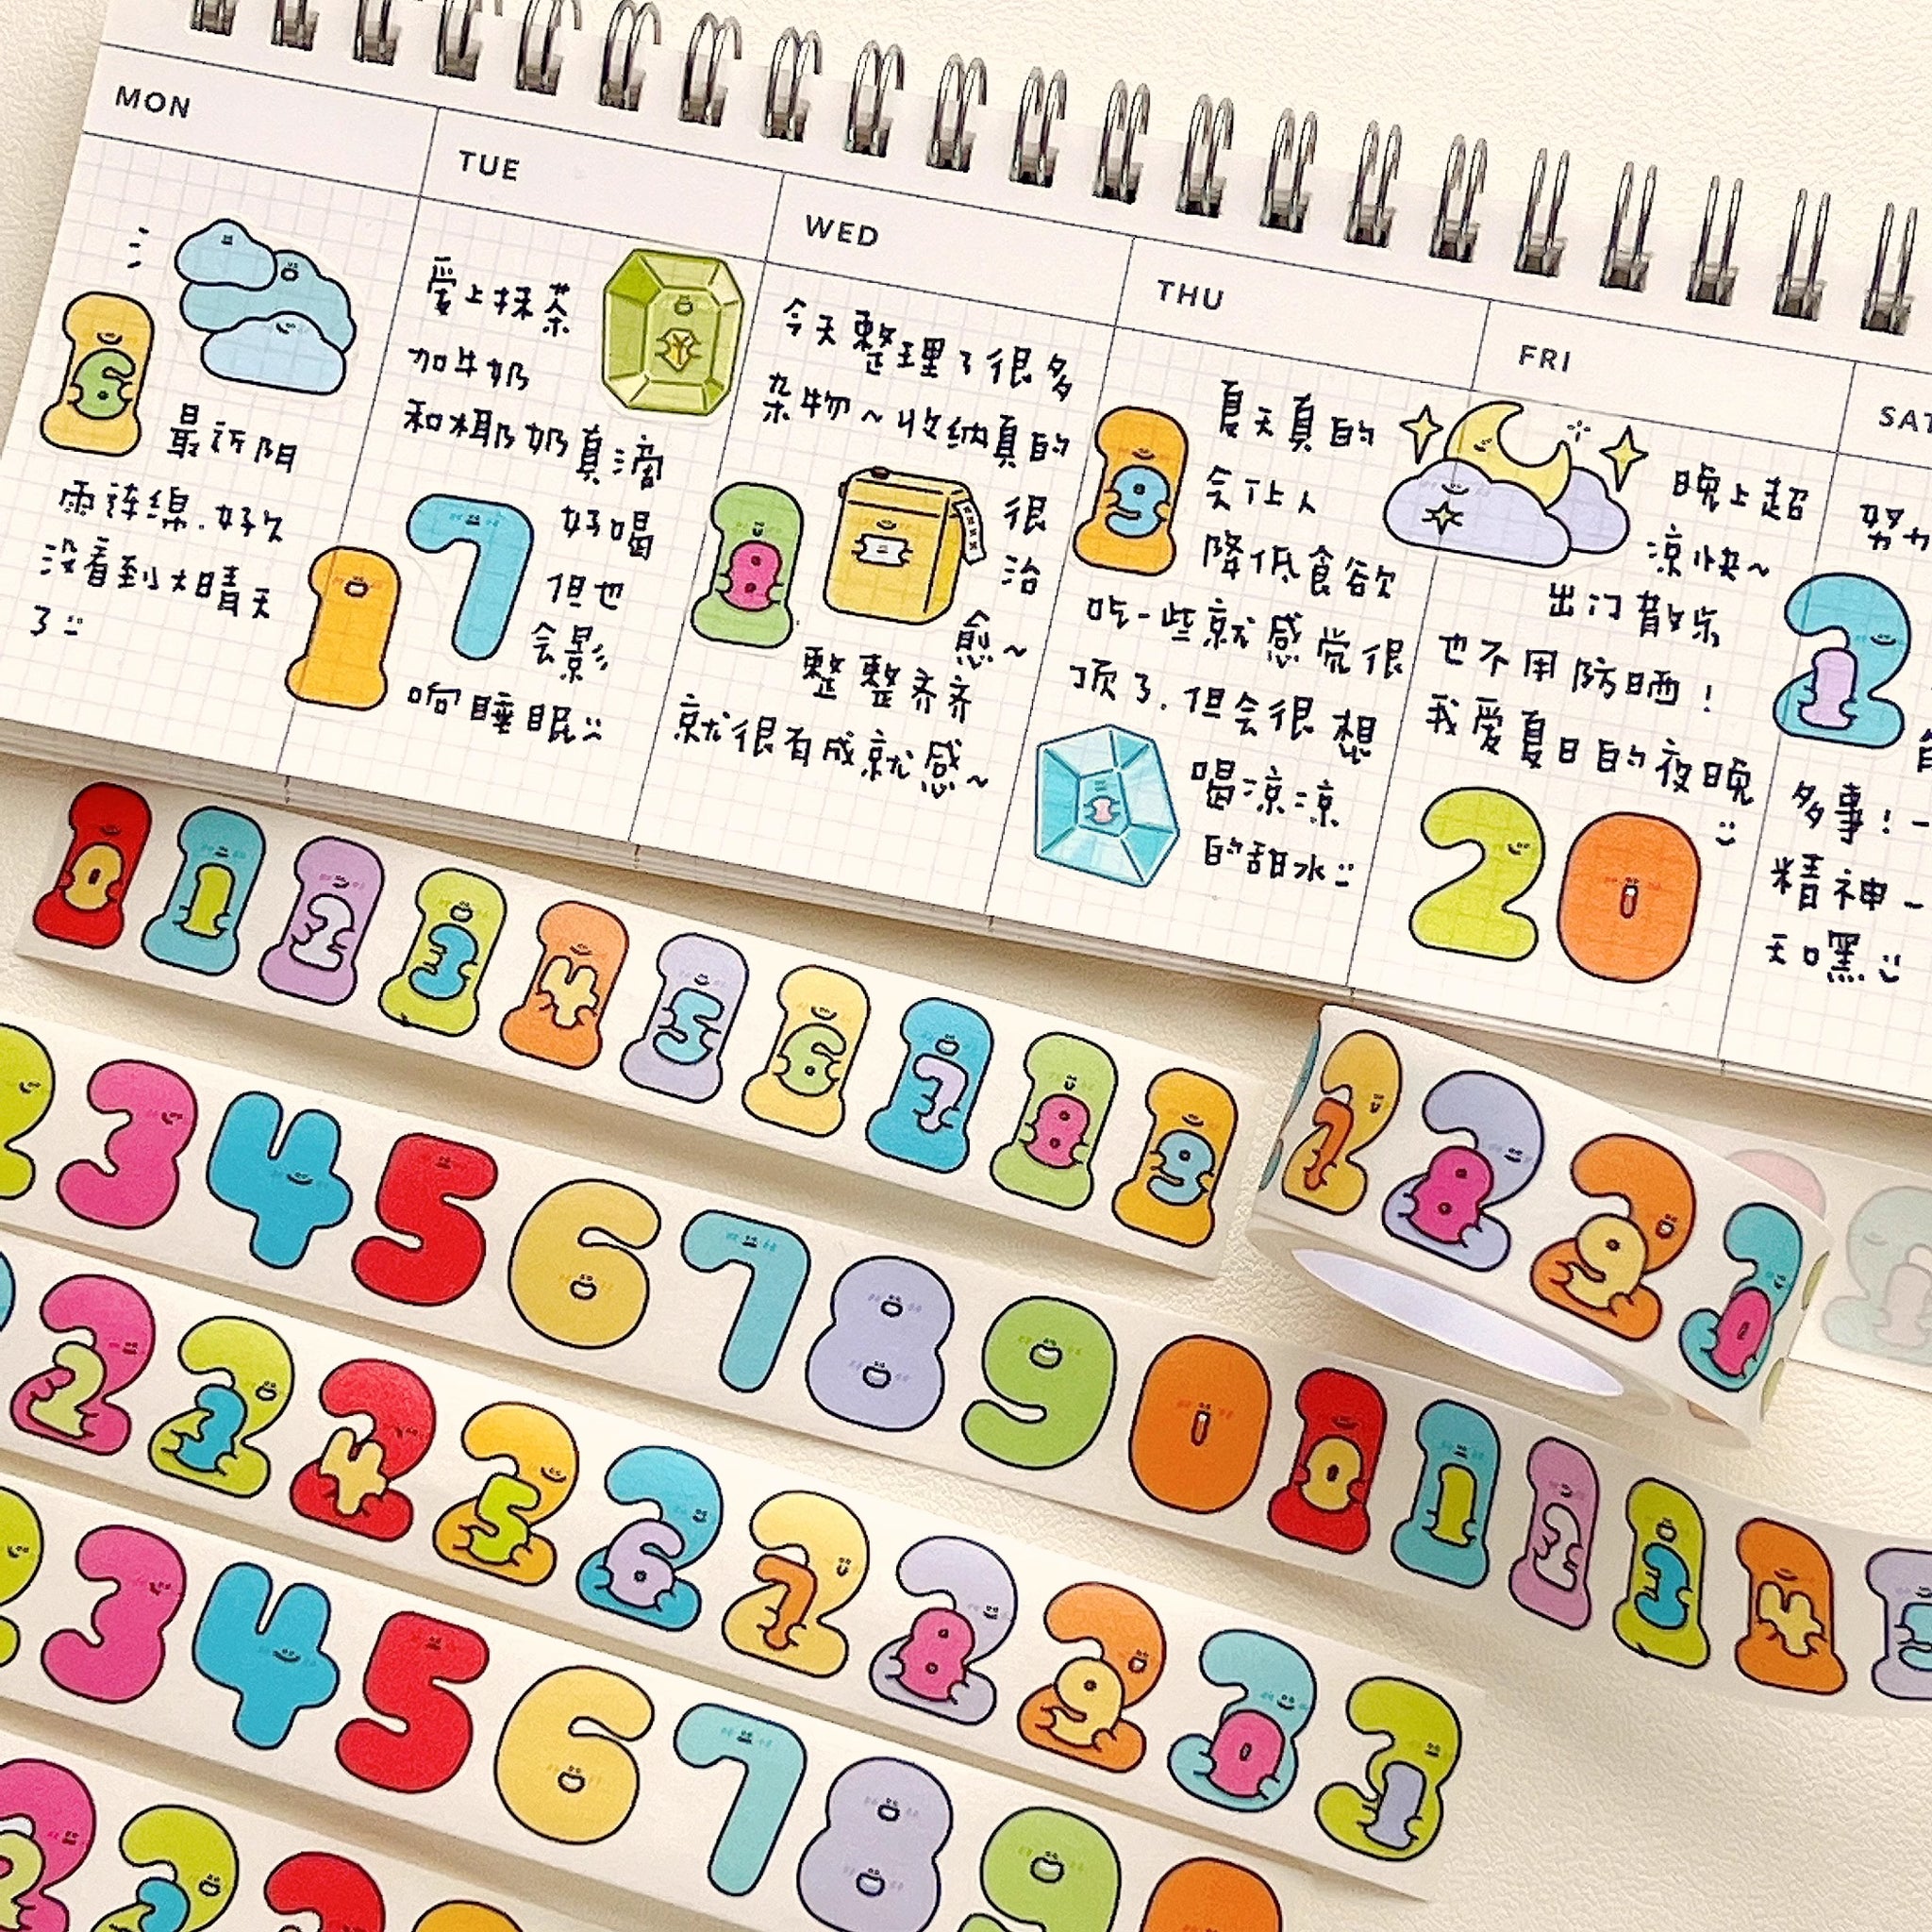 MON
TUE
WED
THU
FRI
SAT
16
最近阴
雨连绵.好久
没看到大晴天
了
爱上抹茶
加牛奶
和椰奶真滴
17
好喝
但也
会影
响睡眠
今天整理了很多
杂物~收纳真的
18
很
治
愈~
整整齐齐
就很有成就感~
19
夏天真的
会让人
降低食欲
吃一些就感觉很
顶了.但会很想
喝凉凉
的甜水
晚上超
凉快~
出门散步
也不用防晒!
我爱夏日的夜晚
20
努力
21
多事!
精神
天口嘿
10 11 12 13 14 15 16 17 18 19
27 28 29 20
2 3 4 5 6 7 8 9 0 10 11 12 13 14 15
22 23 24 25 26 27 28 29 30 31
2 3 4 5 6 7 8 9 0
22 23